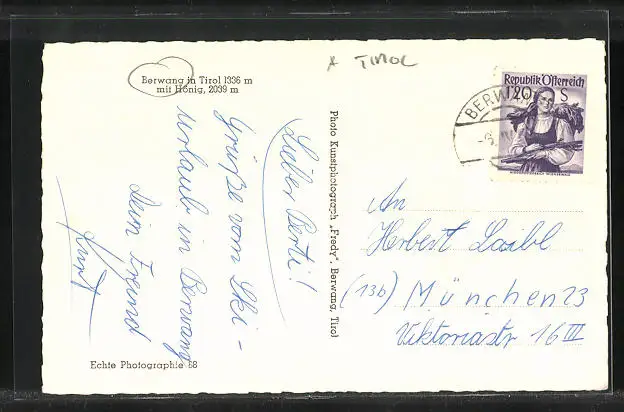 Berwang in Tirol 1336 m
mit Hönig, 2039 m
A TIROL
Republik Österreich
1.20 S
BERWANG
Lieber Berti!
Grüße vom Ski-
urlaub in Berwang
Dein Freund
Kurt
Photo Kunstphotograph „Fredy“, Berwang, Tirol
An
Herbert Loibl
(13b) München 23
Viktoriastr 16 III
Echte Photographie